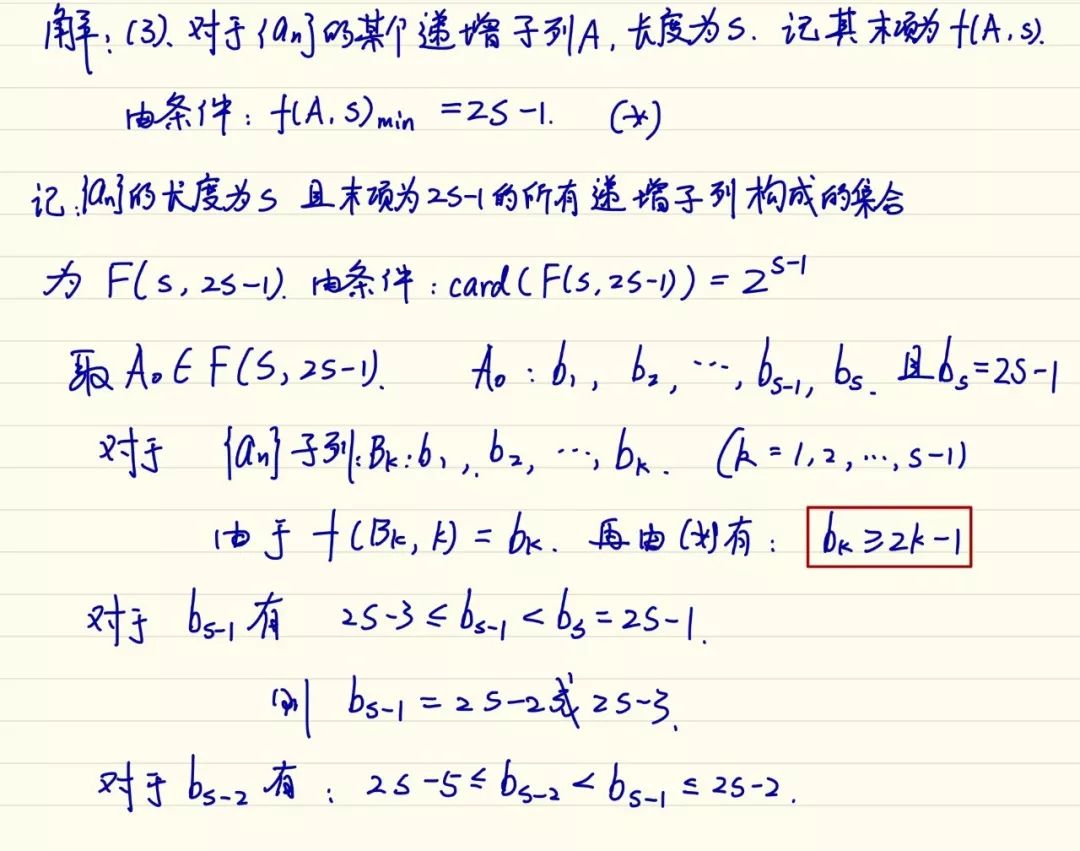 解:(3)、对于{an}的某个递增子列A,长度为S. 记其末项为f(A,s).
由条件:f(A,s)min =2S-1. (*)
记:{an}的长度为s 且末项为2S-1的所有递增子列构成的集合
为 F(s,2s-1). 由条件:card(F(s,2s-1))=2^{s-1}
取A₀∈F(S,2S-1). A₀:b₁, b₂, ⋯, b_{s-1}, b_s. 且b_s=2S-1
对于 {an}子列:B_k:b₁, b₂, ⋯, b_k. (k=1,2,⋯,s-1)
由于 f(B_k,k)=b_k. 再由(*)有: b_k≥2k-1
对于 b_{s-1} 有 2s-3≤b_{s-1}<b_s=2s-1.
则 b_{s-1}=2s-2或2s-3.
对于b_{s-2}有:2s-5≤b_{s-2}<b_{s-1}≤2s-2.